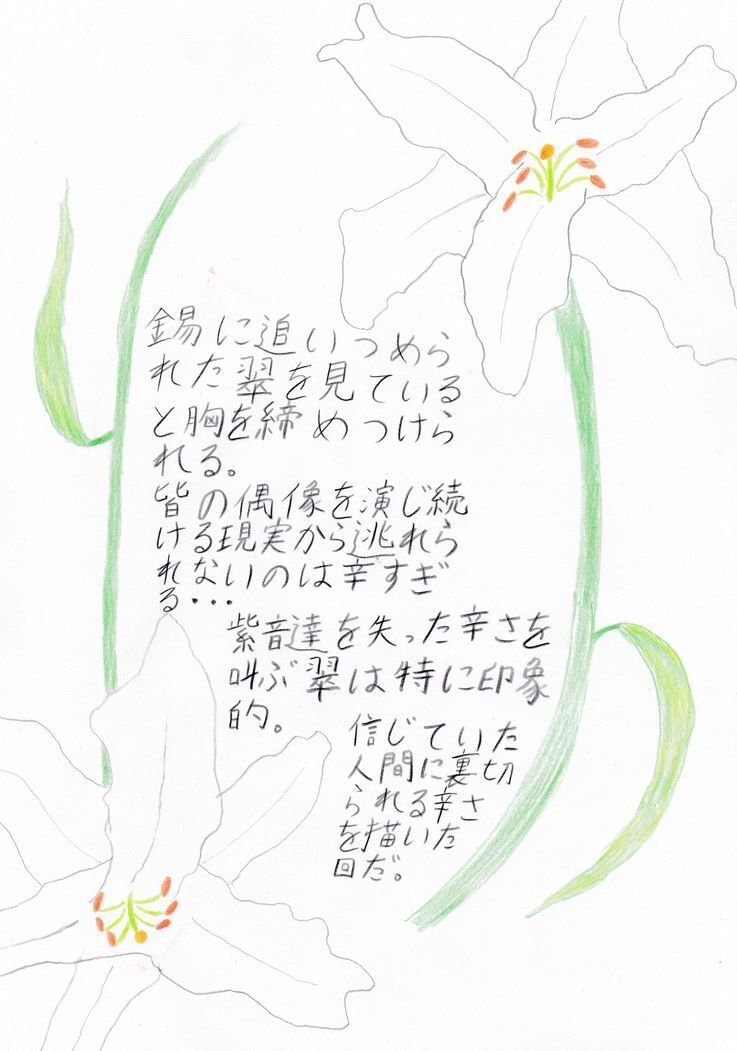 錫に追いつめら
れた翠を見ている
と胸を締めつけら
れる。
皆の偶像を演じ続
ける現実から逃れら
れないのは辛すぎ
る・・・
紫音達を失った辛さを
叫ぶ翠は特に印象
的。
信じていた
人間に裏切
られる辛さ
を描いた
回だ。